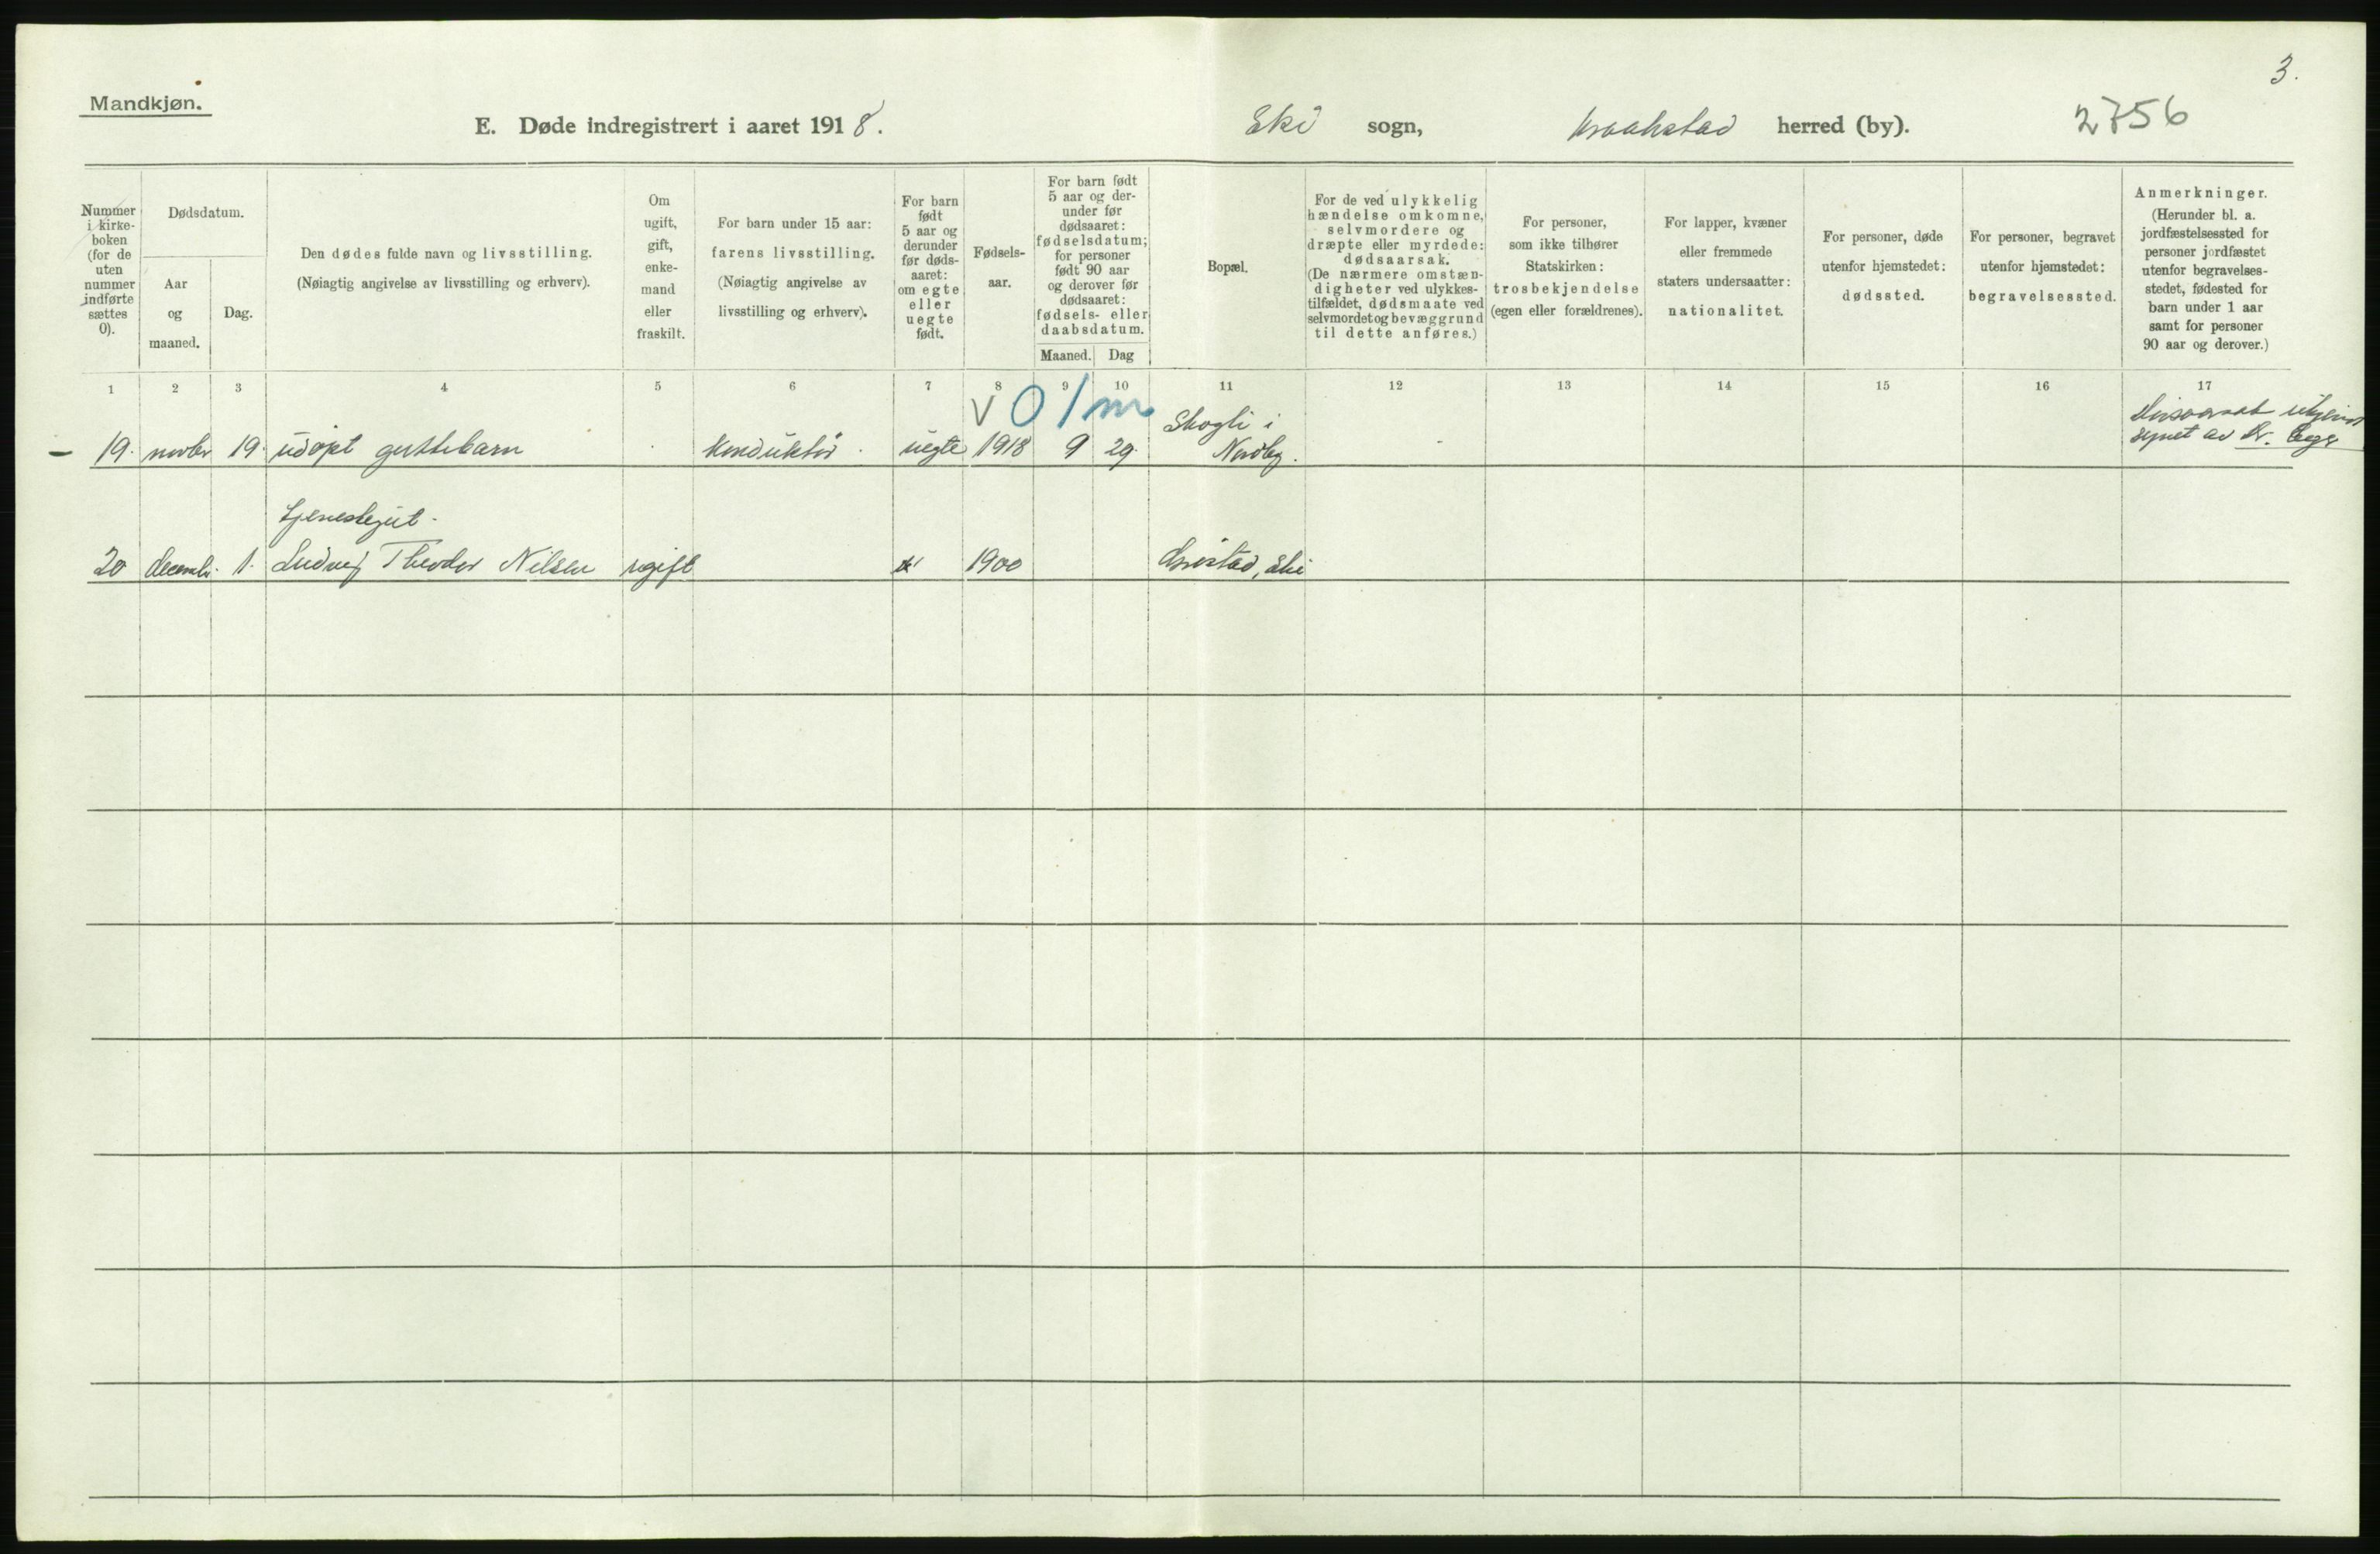 3.
Mandkjøn.
E. Døde indregistrert i aaret 1918.
Ski sogn, Kraakstad herred (by).
2756
Nummer i kirke-boken (for de uten nummer indførte sættes 0).
Dødsdatum.
Aar og maaned.
Dag.
Den dødes fulde navn og livsstilling.
(Nøiagtig angivelse av livsstilling og erhverv).
Om ugift, gift, enke-mand eller fraskilt.
For barn under 15 aar:
farens livsstilling.
(Nøiagtig angivelse av
livsstilling og erhverv).
For barn født 5 aar og derunder før døds-aaret: om egte eller uegte født.
Fødsels-aar.
For barn født 5 aar og der-under før dødsaaret: fødselsdatum; for personer født 90 aar og derover før dødsaaret: fødsels- eller daabsdatum.
Maaned. Dag
Bopæl.
For de ved ulykkelig hændelse omkomne, selvmordere og dræpte eller myrdede: dødsaarsak.
(De nærmere omstæn-digheter ved ulykkes-tilfældet, dødsmaate ved selvmordet og bevæggrund til dette anføres.)
For personer,
som ikke tilhører
Statskirken:
trosbekjendelse
(egen eller forældrenes).
For lapper, kvæner
eller fremmede
staters undersaatter:
nationalitet.
For personer, døde
utenfor hjemstedet:
dødssted.
For personer, begravet
utenfor hjemstedet:
begravelsessted.
Anmerkninger.
(Herunder bl. a.
jordfæstelsessted for
personer jordfæstet
utenfor begravelses-
stedet, fødested for
barn under 1 aar
samt for personer
90 aar og derover.)
1 2 3 4 5 6 7 8 9 10 11 12 13 14 15 16 17
V 0 1 m
Skogli i
19. novbr 19. udøpt guttebarn konduktør uegte 1918 9 29. Nordby.
synet av Dr.
tjenestegut.
20 decemb. 1. Ludvig Theodor Nilsen ugift 1900 Ski